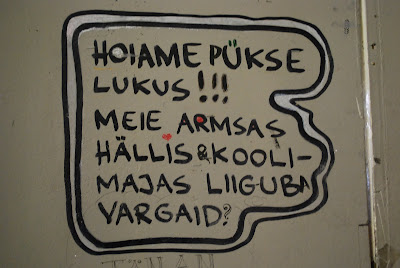 HOIAME PÜKSE
LUKUS!!!
MEIE ARMSAS
HÄLLIS & KOOLI-
MAJAS LIIGUBA
VARGAID?